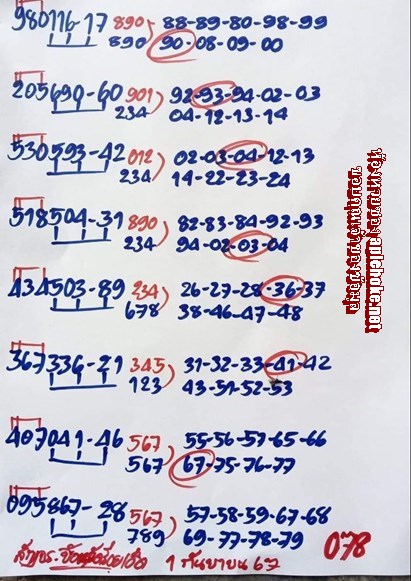 980116-17 890) 88-89-80-98-99
890 90-08-09-00
205690-60 901) 92-93-94-02-03
234 04-12-13-14
530593-42 012) 02-03-04-12-13
234 14-22-23-24
518504-31 890) 82-83-84-92-93
234 94-02-03-04
434503-89 234) 26-27-28-36-37
678 38-46-47-48
367336-21 345) 31-32-33-41-42
123 43-51-52-53
407041-46 567) 55-56-57-65-66
567 67-75-76-77
095867-28 567) 57-58-59-67-68
789 69-77-78-79
1 กันยายน 67
078